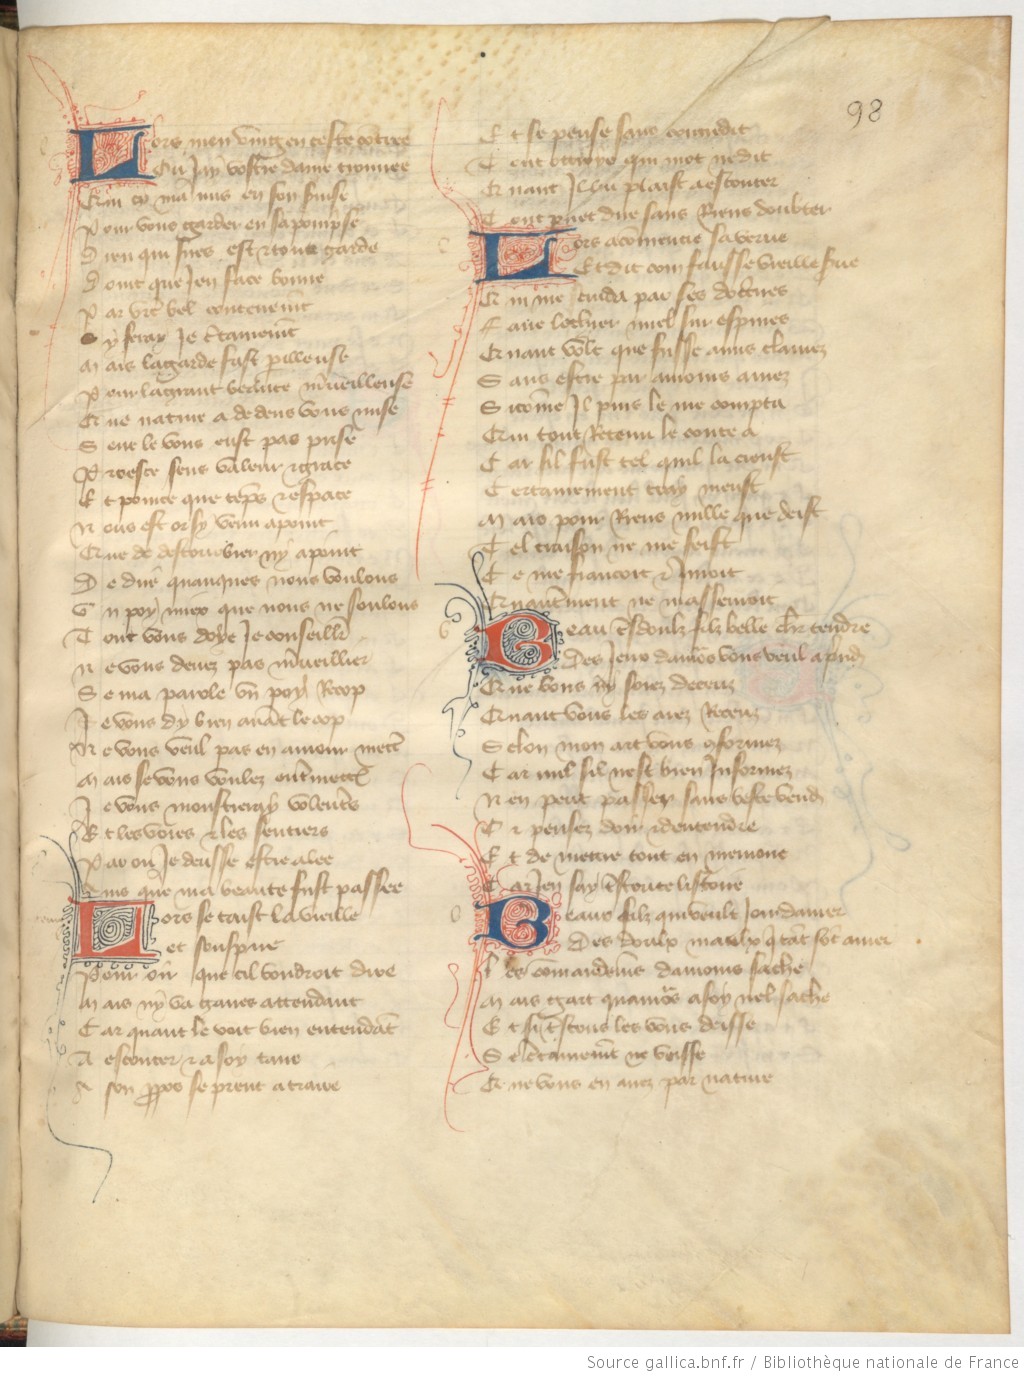 98
Lors men ving en ceste contree
Ou Jay vostre dame trouuee
Qui cy ma mis en son
Pour vous garder en sa
Dieu qui sires est & tout garde
Doint que Jen face bonne
Par vr̃e bel contenemt̃
Sy feray Je ctainemt̃
Mais lagarde fust perilleuse
Pour lagrant beaute mrueilleuse
Que nature a dedens vous mise
Se ne vous eust pas prise
Proesce sens valeur & grace
Et pource que tẽps & espace
Nous est or sy venu apoint
Que de destourbier ny a point
De dire quanques nous voulons
Un poy mieux que nous ne soulons
Tout vous doye Je conseillr
Ne vous deuez pas mrueillier
Se ma parole vn poy Recop
Je vous dy bien auãt le cop
Ne vous veul pas en amour mettr̃
Mais se vous voulez entmettr̃
Je vous monstreray volentrs
Et les voies & les sentiers
Par ou Je deusse estre alee
Ains que ma beaute fust passee
Lors se taist la vieille
et souspire
Pour oir que cil voudroit dire
Mais ny va gaires attendant
Car quant le voit bien entendãt
A escouter & a soy taire
A son ꝓpos se prent a traire
Et se pense sans contredit
Tout ottroye qui mot ne dit
Quant Jl lui plaist a escouter
Tout puet dire sans Riens doubter
Lors a commencie sa verue
Et dit com fausse vieille
Qui me cuida par ses doctrines
Faire lechier miel sur espines
Quant volt que fusse amis clamez
Sans estre par amours amez
Sicõme Jl puis le me compta
Qui tout Retenu le conte a
Car sil fust tel quil la creust
Certainement tray meust
Mais pour Riens nulle que deist
Tel traison ne me feist
Ce me fiancoit & Juroit
Autrement ne masseuroit
Beau tsdoulz filz belle chr tendre
Des Jeux damõs vous veul aprendr̃
Que vous ny soiez deceuz
Quant vous les aurez Receuz
Selon mon art vous ꝯformez
Car nul sil nest bien Jnformez
Nen peut passer sans beste vendr̃
Or pensez doir & dentendre
Et de mettre tout en memoire
Car Jen say tr̃stoute listoire
Beau filz qui veult Joir damer
Des doulx maulx q̃ tãt sõt amer
Les commandemẽs damours sache
Mais gart quamõs a soy nel sache
Et si tr̃stous les vous deisse
Se ctainemt̃ ne veisse
Que vous en auez par nature
Source gallica.bnf.fr / Bibliothèque nationale de France